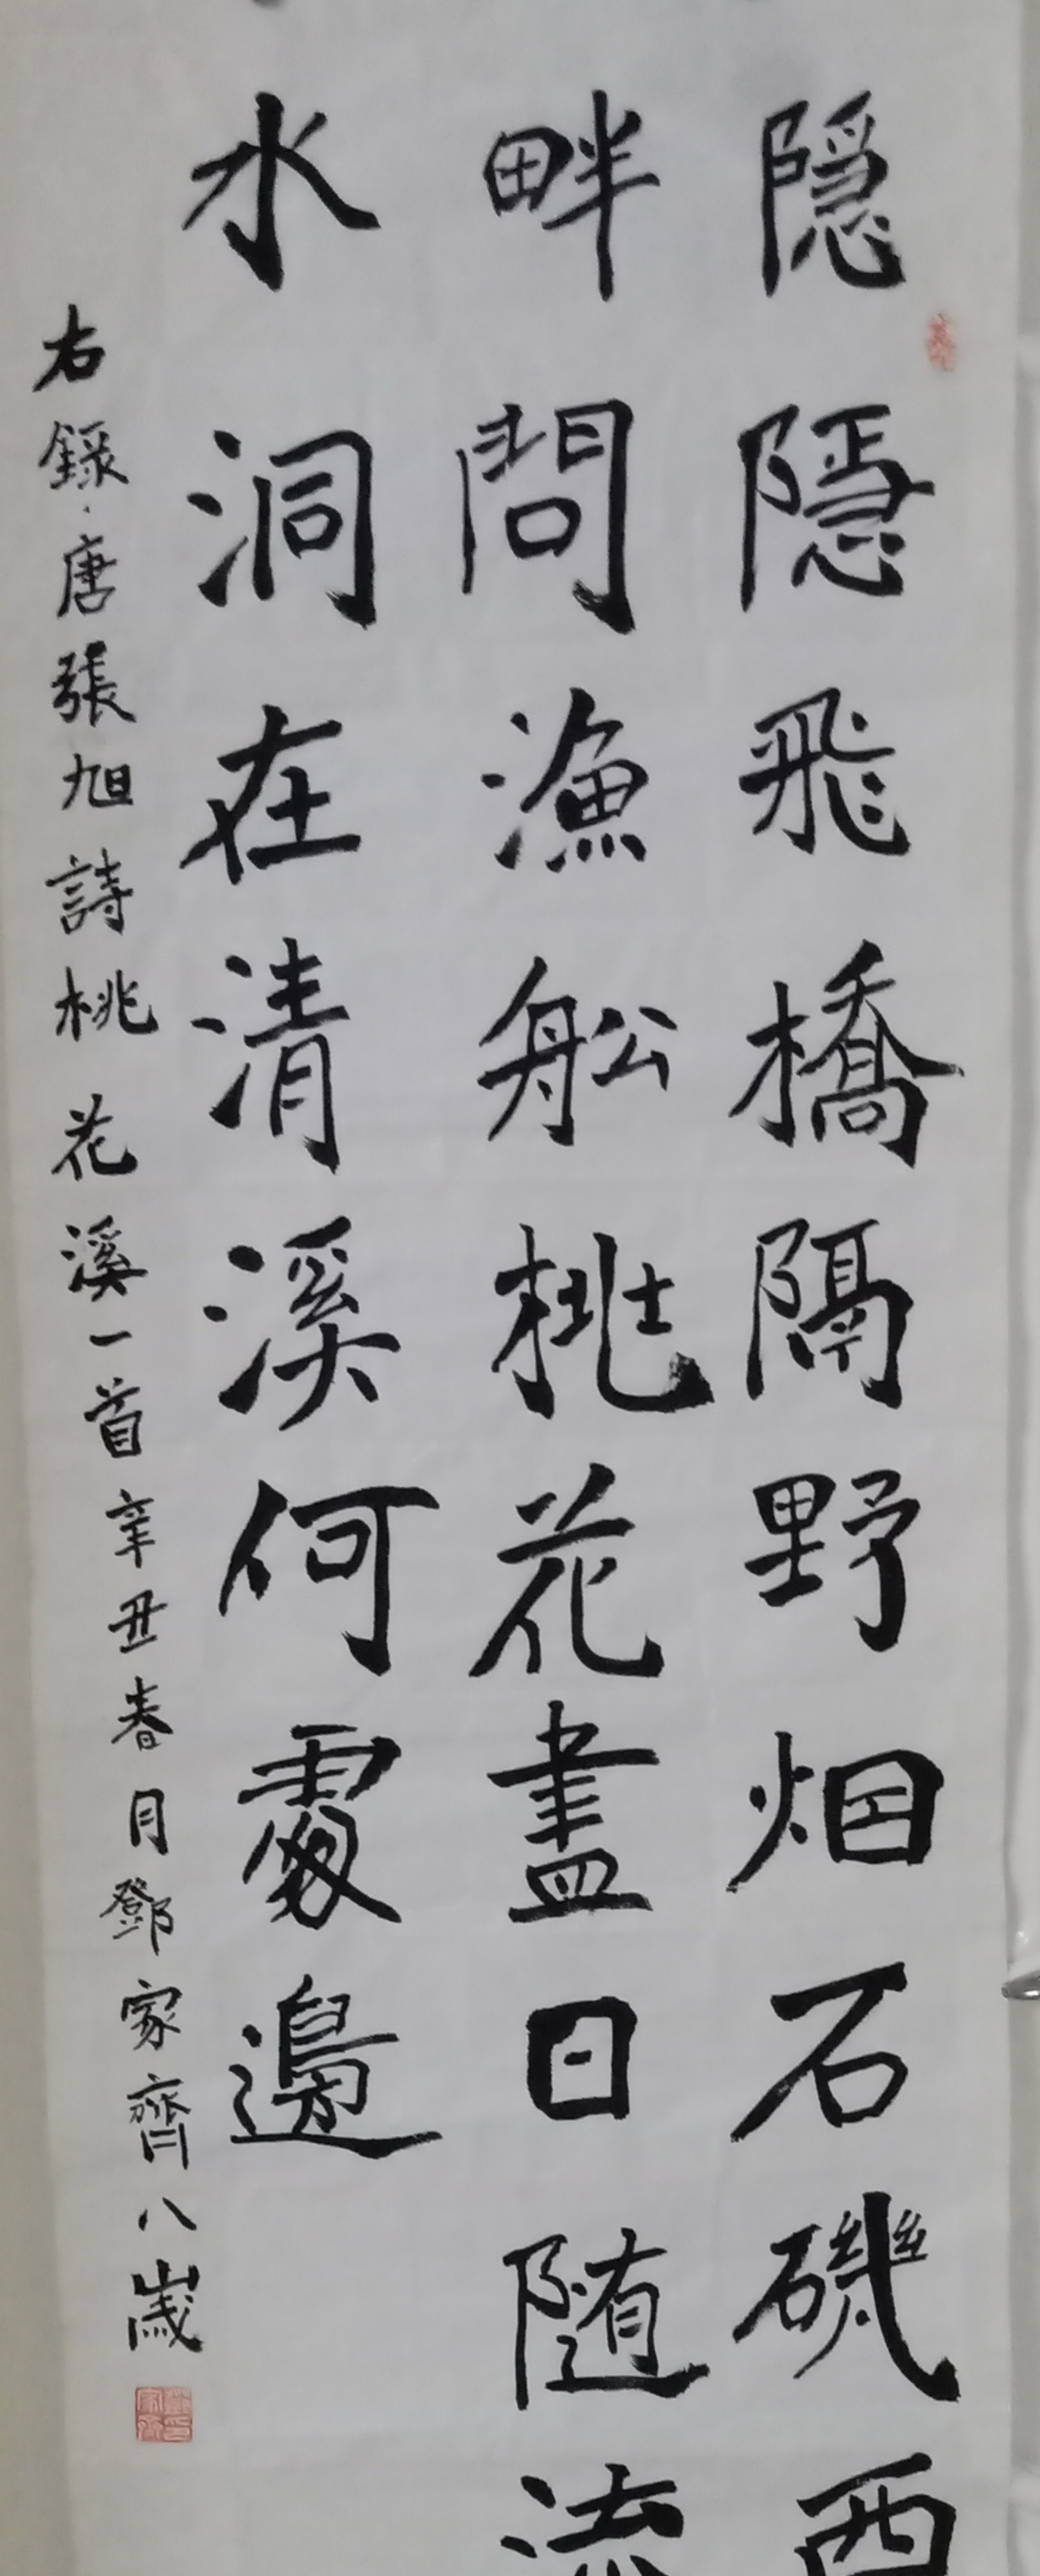 隱隱飛橋隔野烟石磯西
畔問漁舩桃花盡日随流
水洞在清溪何處邊
右錄唐張旭詩桃花溪一首辛丑春月鄧家齊八歲